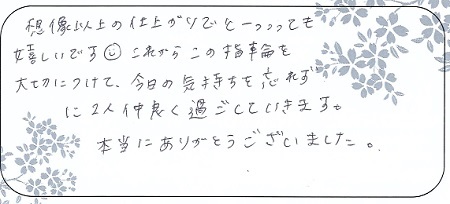 想像以上の仕上がりでとーっっっても
嬉しいです☺ これからこの指輪を
大切につけて、今日の気持ちを忘れず
に2人仲良く過ごしていきます。
本当にありがとうございました。